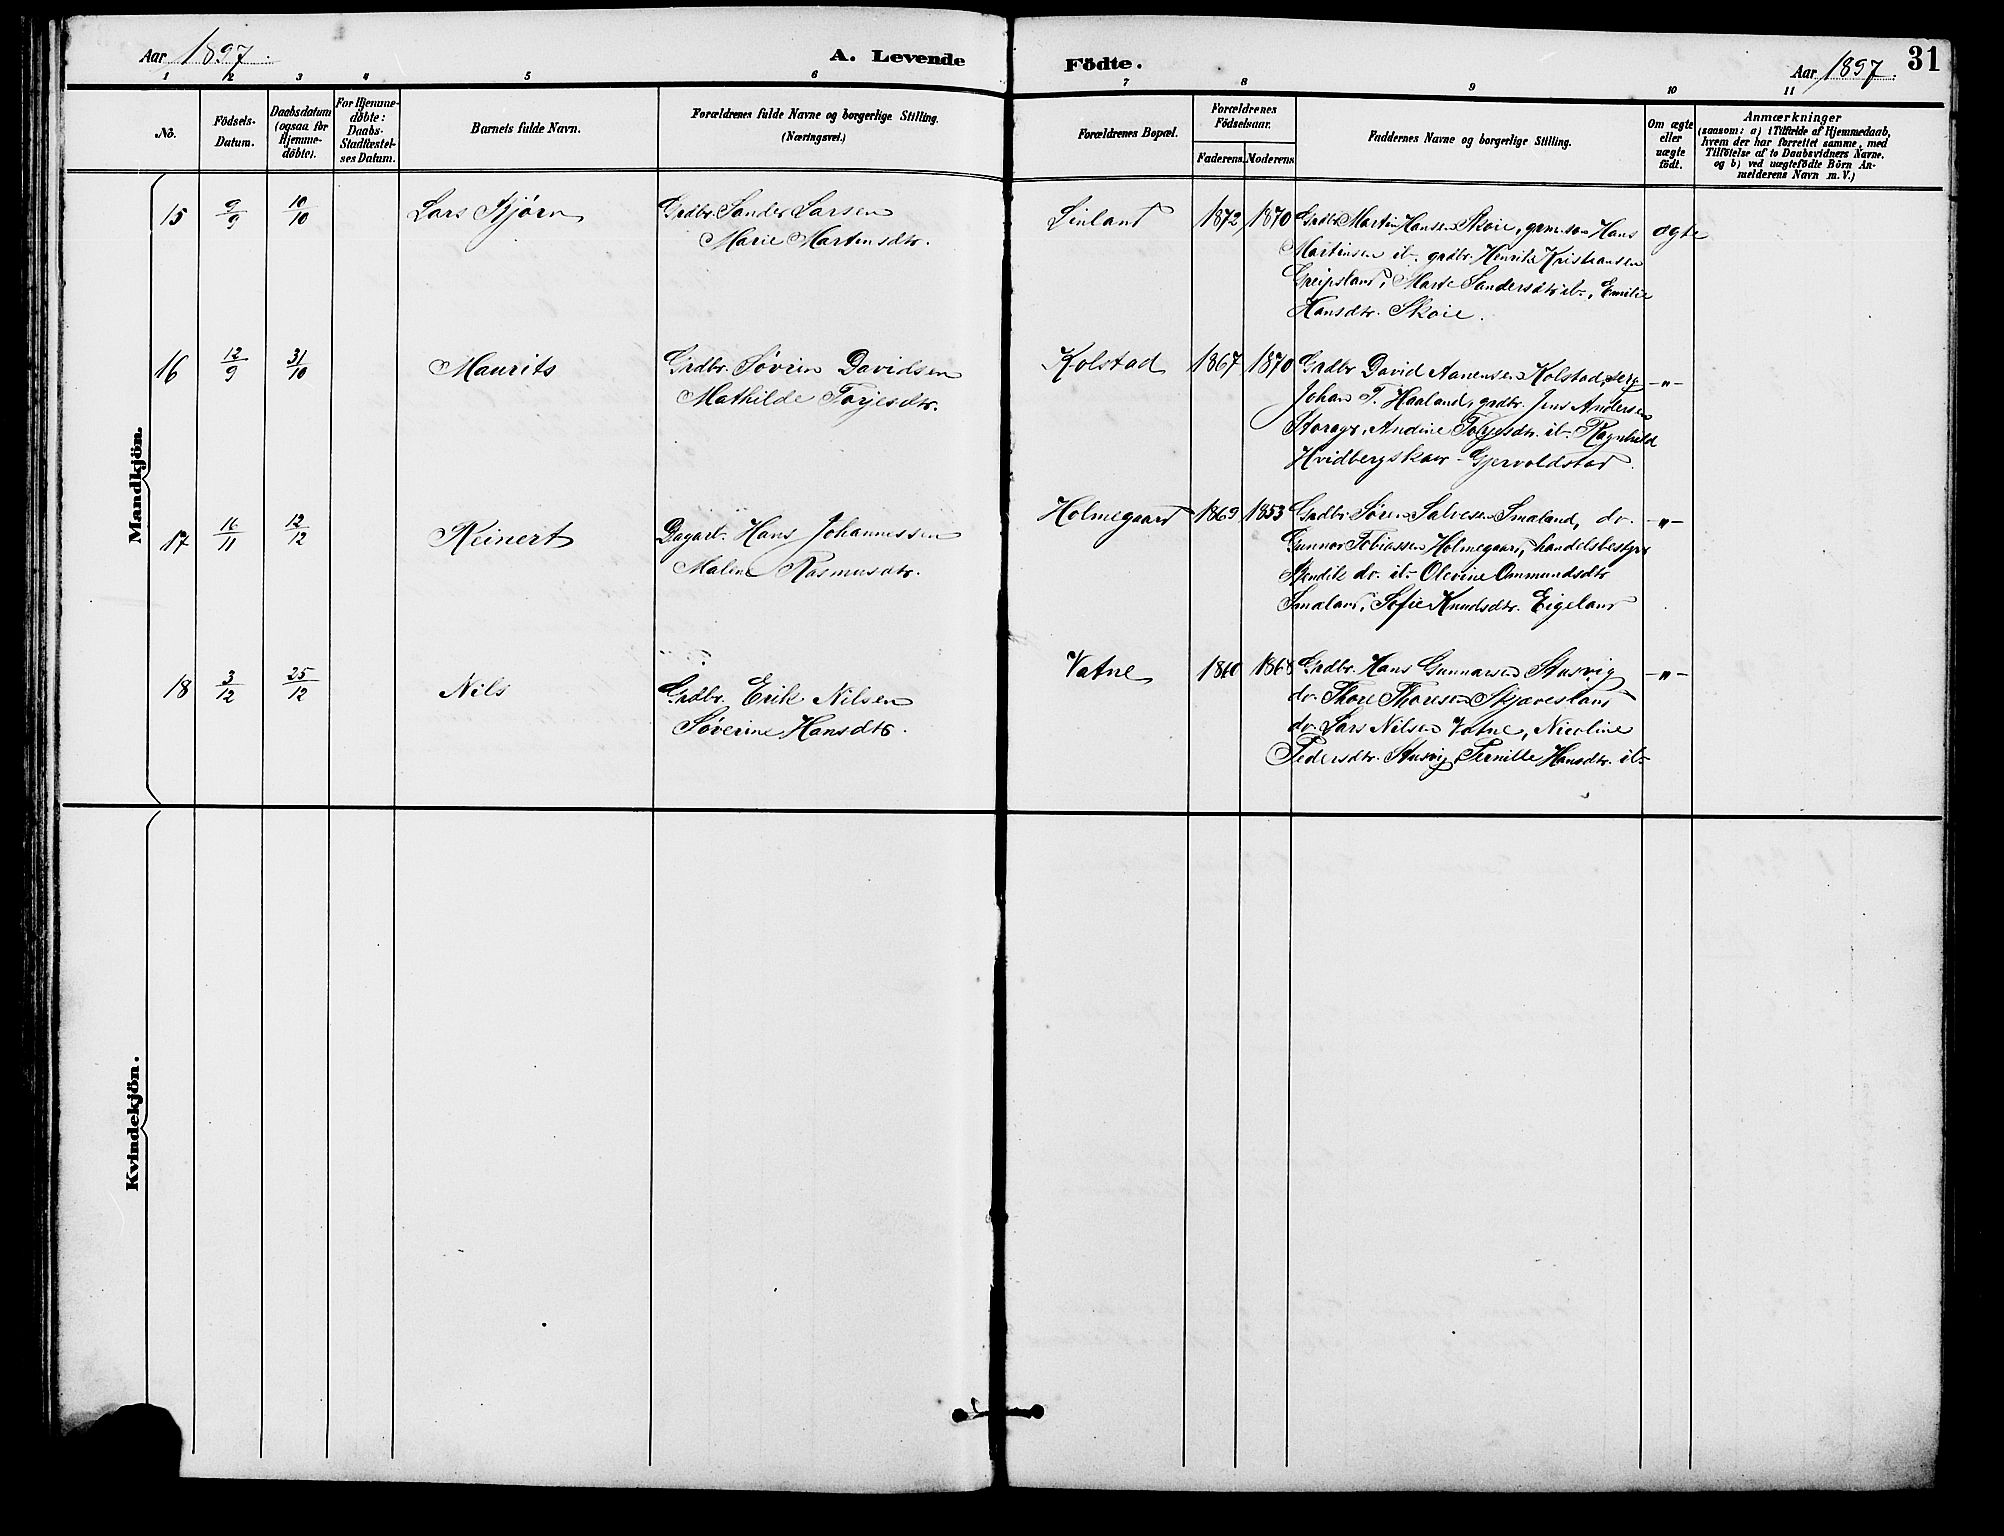 Aar 1897.
A. Levende Födte.
Aar 1897.
31
1 2 3 4 5 6 7 8 9 10 11
No.
Födsels-
Datum.
Daabsdatum
(ogsaa for
Hjemme-
döbte).
For Hjemme-
döbte:
Daabs-
Stadfæstel-
ses Datum.
Barnets fulde Navn.
Forældrenes fulde Navne og borgerlige Stilling.
(Næringsvei.)
Forældrenes Bopæl.
Forældrenes
Födselsaar.
Faderens. Moderens.
Faddernes Navne og borgerlige Stilling.
Om ægte
eller
uægte
födt.
Anmærkninger
(saasom: a) i Tilfælde af Hjemmedaab,
hvem der har forrettet samme, med
Tilföielse af to Daabsvidners Navne.
og b) ved uægtefödte Börn An-
melderens Navn m. V.)
Mandkjön.
15 9/9 10/10 Lars Bjørn
Grdbr. Sander Larsen
Marie Martinsdtr.
Linland 1872 1870
Grdbr. Martin Hansen Skoie, grdm.søn Hans
Martinsen it. grdbr. Henrik Kristiansen
Greipsland, Marte Sandersdtr. it., Emilie
Hansdtr. Skoie.
ægte
16 12/9 31/10 Maurits
Grdbr. Søvrin Davidsen
Mathilde Torjesdtr.
Kolstad 1867 1870
Grdbr. David Aanensen Kolstad, serg.
Johan T. Haaland, grdbr. Jens Andersen
Andine Torjesdtr. it. Ragnhild
Hvidbergskaar - Gjervoldstad.
-"-
17 16/11 12/12 Reinert
Dagarb. Hans Johannessen
Malene Rasmusdtr.
Holmegaard 1869 1853
Grdbr. Søren Salvesen Smaland, do.
Gunnar Tobiassen Holmegaard, handelsbestyr
Bendik do. it. Olevine Ommundsdtr.
Smaland, Sofie Knudsdtr. Eigeland
-"-
18 3/12 25/12 Nils
Grdbr. Erik Nilsen
Søverine Hansdtr.
Vatne 1860 1868
Grdbr. Hans Gunnarsen Stusvig
do. Thore Thoresen Skjævesland
do. Lars Nilsen Vatne, Nicoline
Pedersdtr. Stusvig, Pernille Hansdtr. it.
-"-
Kvindekjön.